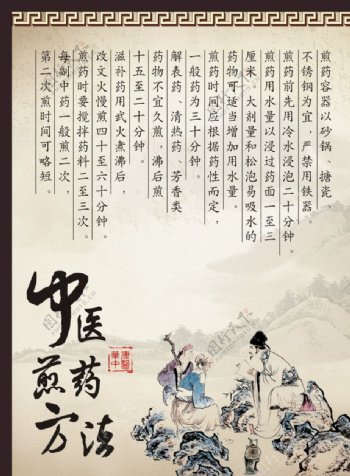 煎药容器以砂锅、搪瓷、
不锈钢为宜，严禁用铁器。
煎药前先用冷水浸泡二十分钟。
煎药用水量以浸过药面一至三
厘米。大剂量和松泡易吸水的
药物可适当增加用水量。
煎药时间应根据药性而定，
一般药为三十分钟。
解表药、清热药、芳香类
药物不宜久煎，沸后煎
十五至二十分钟。
滋补药用武火煮沸后，
改文火慢煎四十至六十分钟。
煎药时要搅拌药料二至三次。
每剂中药一般煎二次，
第二次煎时间可略短。
中医
煎药
方法